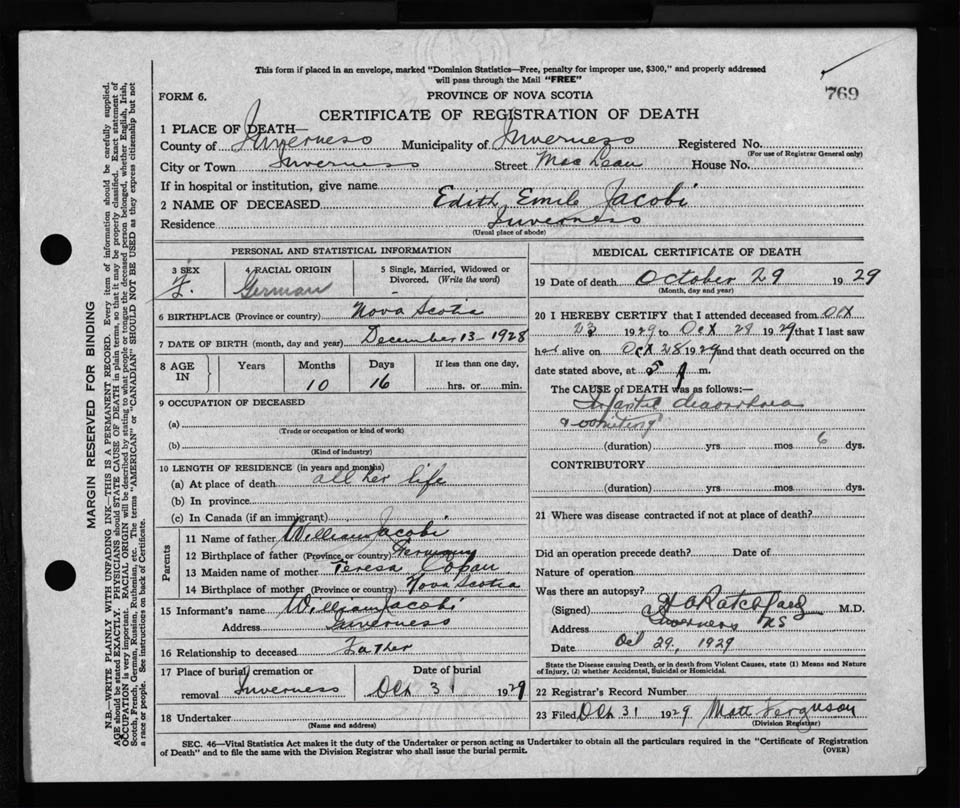 This form if placed in an envelope, marked "Dominion Statistics—Free, penalty for improper use, $300," and properly addressed
will pass through the Mail "FREE"
769
FORM 6.
PROVINCE OF NOVA SCOTIA
CERTIFICATE OF REGISTRATION OF DEATH
1 PLACE OF DEATH—
County of Inverness Municipality of Inverness Registered No.
(For use of Registrar General only)
City or Town Inverness Street MacLean House No.
If in hospital or institution, give name
2 NAME OF DECEASED Edith Emile Jacobi
Residence Inverness
(Usual place of abode)
PERSONAL AND STATISTICAL INFORMATION
3 SEX F. 4 RACIAL ORIGIN German 5 Single, Married, Widowed or Divorced. (Write the word) -
6 BIRTHPLACE (Province or country) Nova Scotia
7 DATE OF BIRTH (month, day and year) December 13 - 1928
8 AGE IN Years Months 10 Days 16 If less than one day, hrs. or min.
9 OCCUPATION OF DECEASED
(a)
(Trade or occupation or kind of work)
(b)
(Kind of industry)
10 LENGTH OF RESIDENCE (in years and months)
(a) At place of death all her life
(b) In province
(c) In Canada (if an immigrant)
Parents
11 Name of father William Jacobi
12 Birthplace of father (Province or country) Germany
13 Maiden name of mother Teresa
14 Birthplace of mother (Province or country) Nova Scotia
15 Informant's name William Jacobi
Address Inverness
16 Relationship to deceased Father
17 Place of burial, cremation or removal Inverness Date of burial Oct 31 1929
18 Undertaker
(Name and address)
MEDICAL CERTIFICATE OF DEATH
19 Date of death October 29 1929
(Month, day and year)
20 I HEREBY CERTIFY that I attended deceased from Oct
23 1929 to Oct 28 1929 that I last saw
her alive on Oct 28 1929 and that death occurred on the
date stated above, at 5 m.
The CAUSE of DEATH was as follows:—
Infantile diarrhoea
& vomiting
(duration) yrs mos 6 dys.
CONTRIBUTORY
(duration) yrs. mos. dys.
21 Where was disease contracted if not at place of death?
Did an operation precede death? Date of
Nature of operation
Was there an autopsy?
(Signed) M.D.
Address Inverness NS
Date Oct 29, 1929
State the Disease causing Death, or in death from Violent Causes, state (1) Means and Nature
of Injury, (2) whether Accidental, Suicidal or Homicidal.
22 Registrar's Record Number
23 Filed Oct 31 1929 Matt Ferguson
(Division Registrar)
SEC. 46—Vital Statistics Act makes it the duty of the Undertaker or person acting as Undertaker to obtain all the particulars required in the "Certificate of Registration
of Death" and to file the same with the Division Registrar who shall issue the burial permit.
(OVER)
MARGIN RESERVED FOR BINDING
N.B.—WRITE PLAINLY WITH UNFADING INK—THIS IS A PERMANENT RECORD. Every item of information should be carefully supplied.
AGE should be stated EXACTLY. PHYSICIANS should STATE CAUSE OF DEATH in plain terms, so that it may be properly classified. Exact statement of
OCCUPATION is very important. RACIAL ORIGIN will be described by stating to what people or tongue the deceased person belonged, whether English, Irish,
Scotch, French, German, Russian, Ruthenian, etc. The terms "AMERICAN" or "CANADIAN" SHOULD NOT BE USED as they express citizenship but not
a race or people. See instructions on back of Certificate.